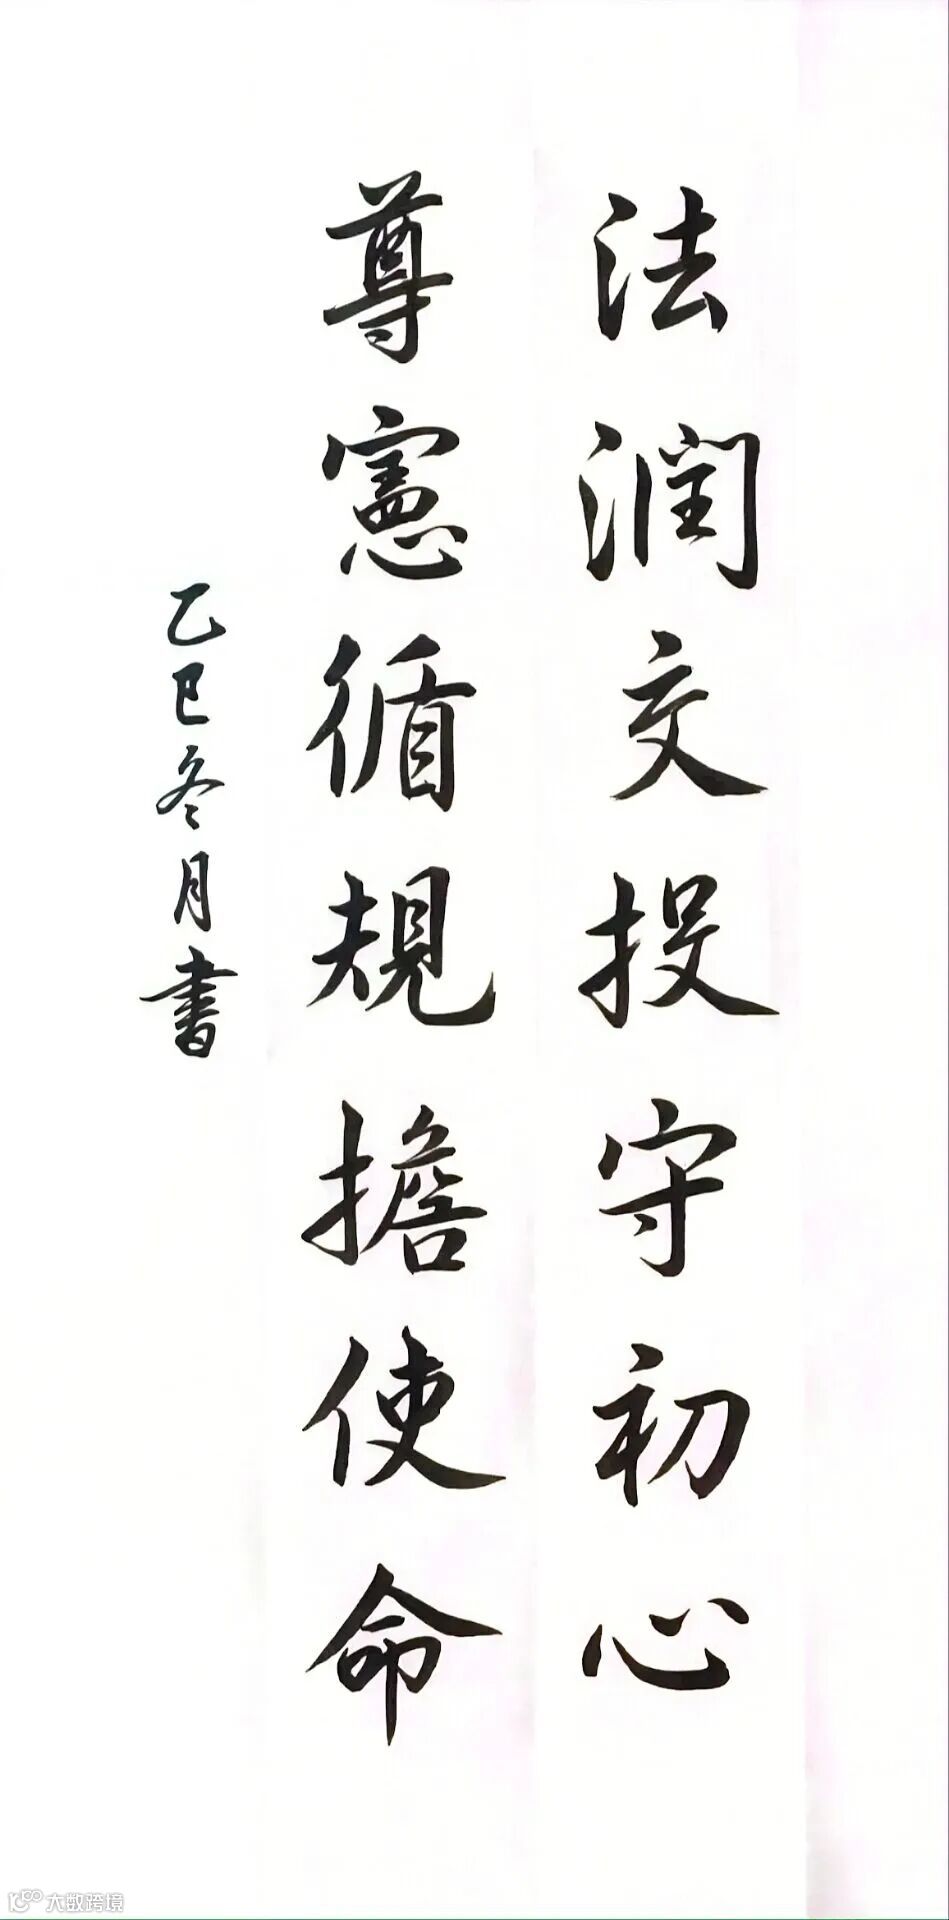 法潤交投守初心
尊憲循規擔使命
乙巳冬月書
大数跨境